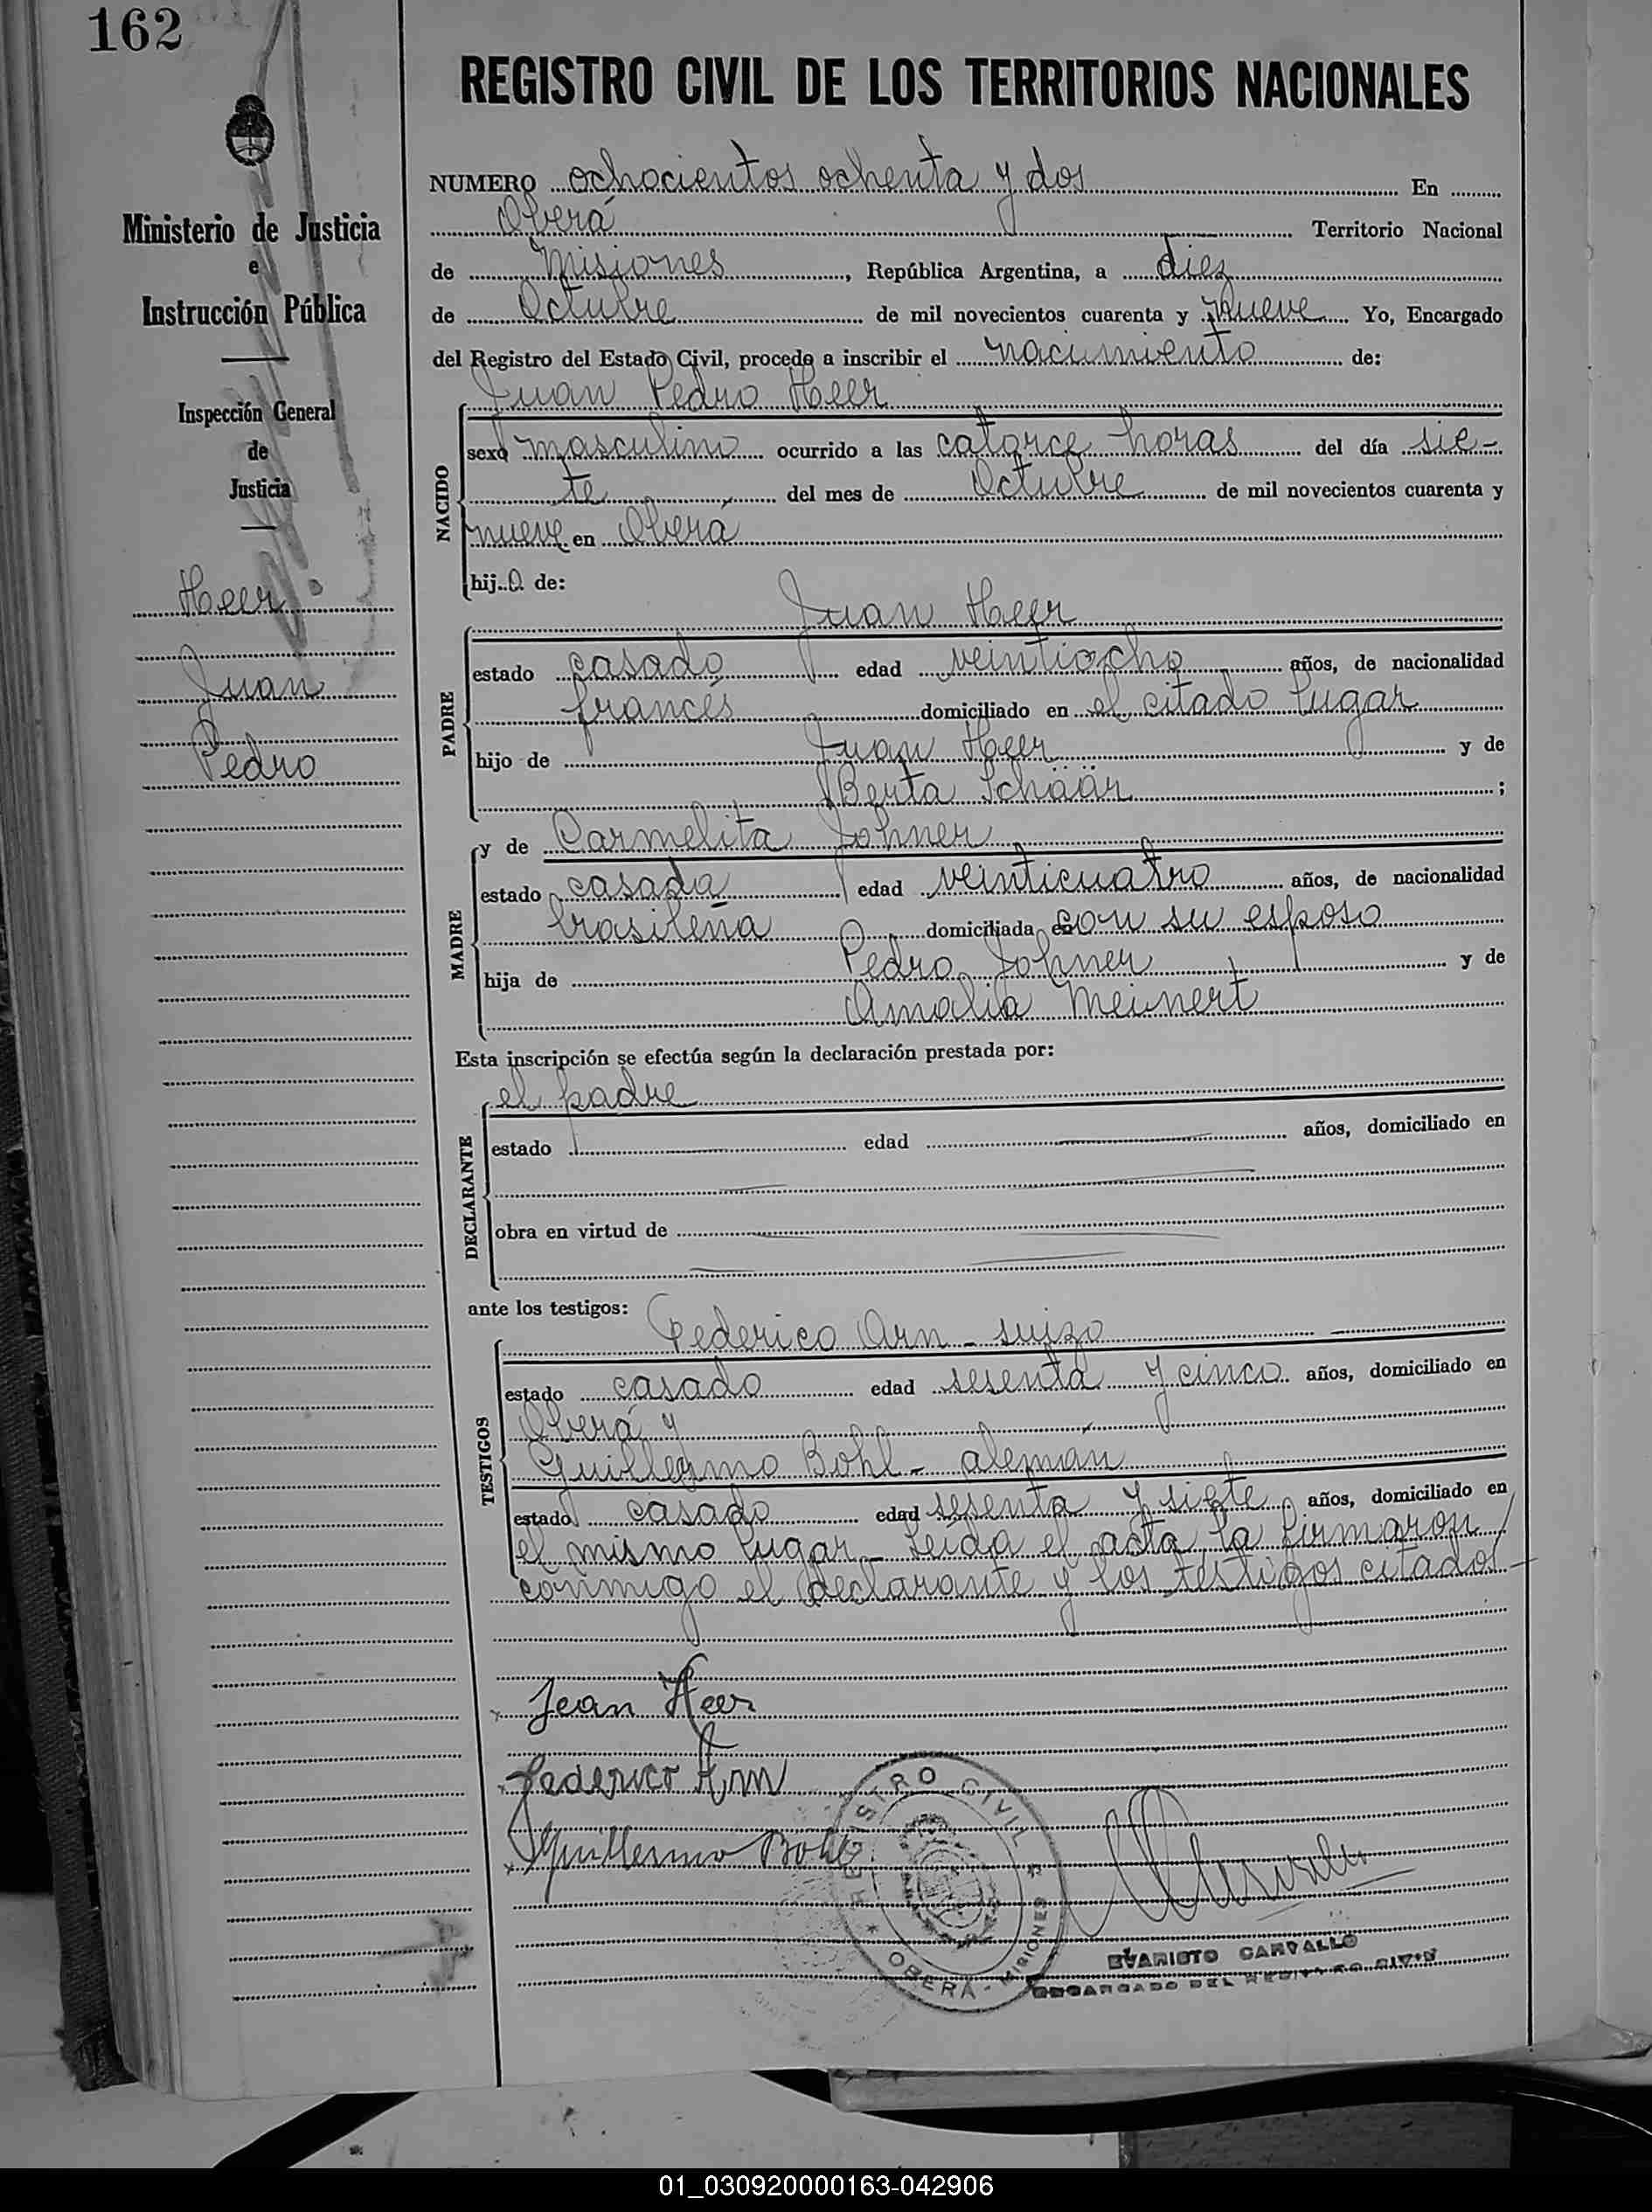 162
REGISTRO CIVIL DE LOS TERRITORIOS NACIONALES
Ministerio de Justicia
e
Instrucción Pública
Inspección General
de
Justicia
Heer
Juan
Pedro
NUMERO ochocientos ochenta y dos En
Oberá Territorio Nacional
de Misiones, República Argentina, a diez
de Octubre de mil novecientos cuarenta y nueve Yo, Encargado
del Registro del Estado Civil, procedo a inscribir el nacimiento de:
Juan Pedro Heer
NACIDO
sexo masculino ocurrido a las catorce horas del día sie-
te del mes de Octubre de mil novecientos cuarenta y
nueve en Oberá
hijo de:
Juan Heer
PADRE
estado casado edad veintiocho años, de nacionalidad
francés domiciliado en el citado lugar
hijo de Juan Heer y de
Berta Schäär ;
y de Carmelita Johner
MADRE
estado casada edad veinticuatro años, de nacionalidad
brasileña domiciliada con su esposo
hija de Pedro Johner y de
Amalia Meinert
Esta inscripción se efectúa según la declaración prestada por:
el padre
DECLARANTE
estado edad años, domiciliado en
obra en virtud de
ante los testigos:
Federico Arn - suizo
TESTIGOS
estado casado edad sesenta y cinco años, domiciliado en
Oberá y
Guillermo Bohl - alemán
estado casado edad sesenta y siete años, domiciliado en
el mismo lugar - Leída el acta la firmaron
conmigo el declarante y los testigos citados -
Jean Heer
Federico Arn
Guillermo Bohl
REGISTRO CIVIL
* OBERÁ - MISIONES *
EVARISTO CARVALLO
ENCARGADO DEL REGISTRO CIVIL
01_030920000163-042906